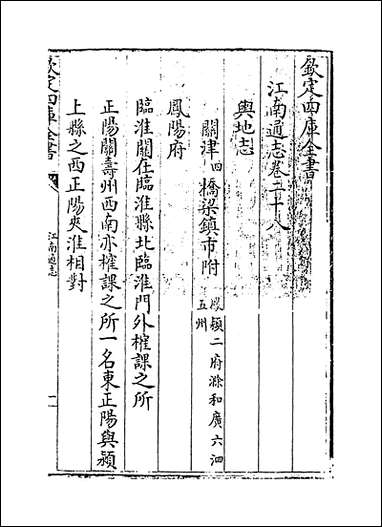 欽定四庫全書
江南通志卷二十八
輿地志
關津四橋梁鎮市附鳳頴二府滁和廣六泗五州
鳳陽府
臨淮關在臨淮縣北臨淮門外榷課之所
正陽關壽州西南亦榷課之所一名東正陽與潁
上縣之西正陽夾淮相對
欽定四庫全書
江南通志
一